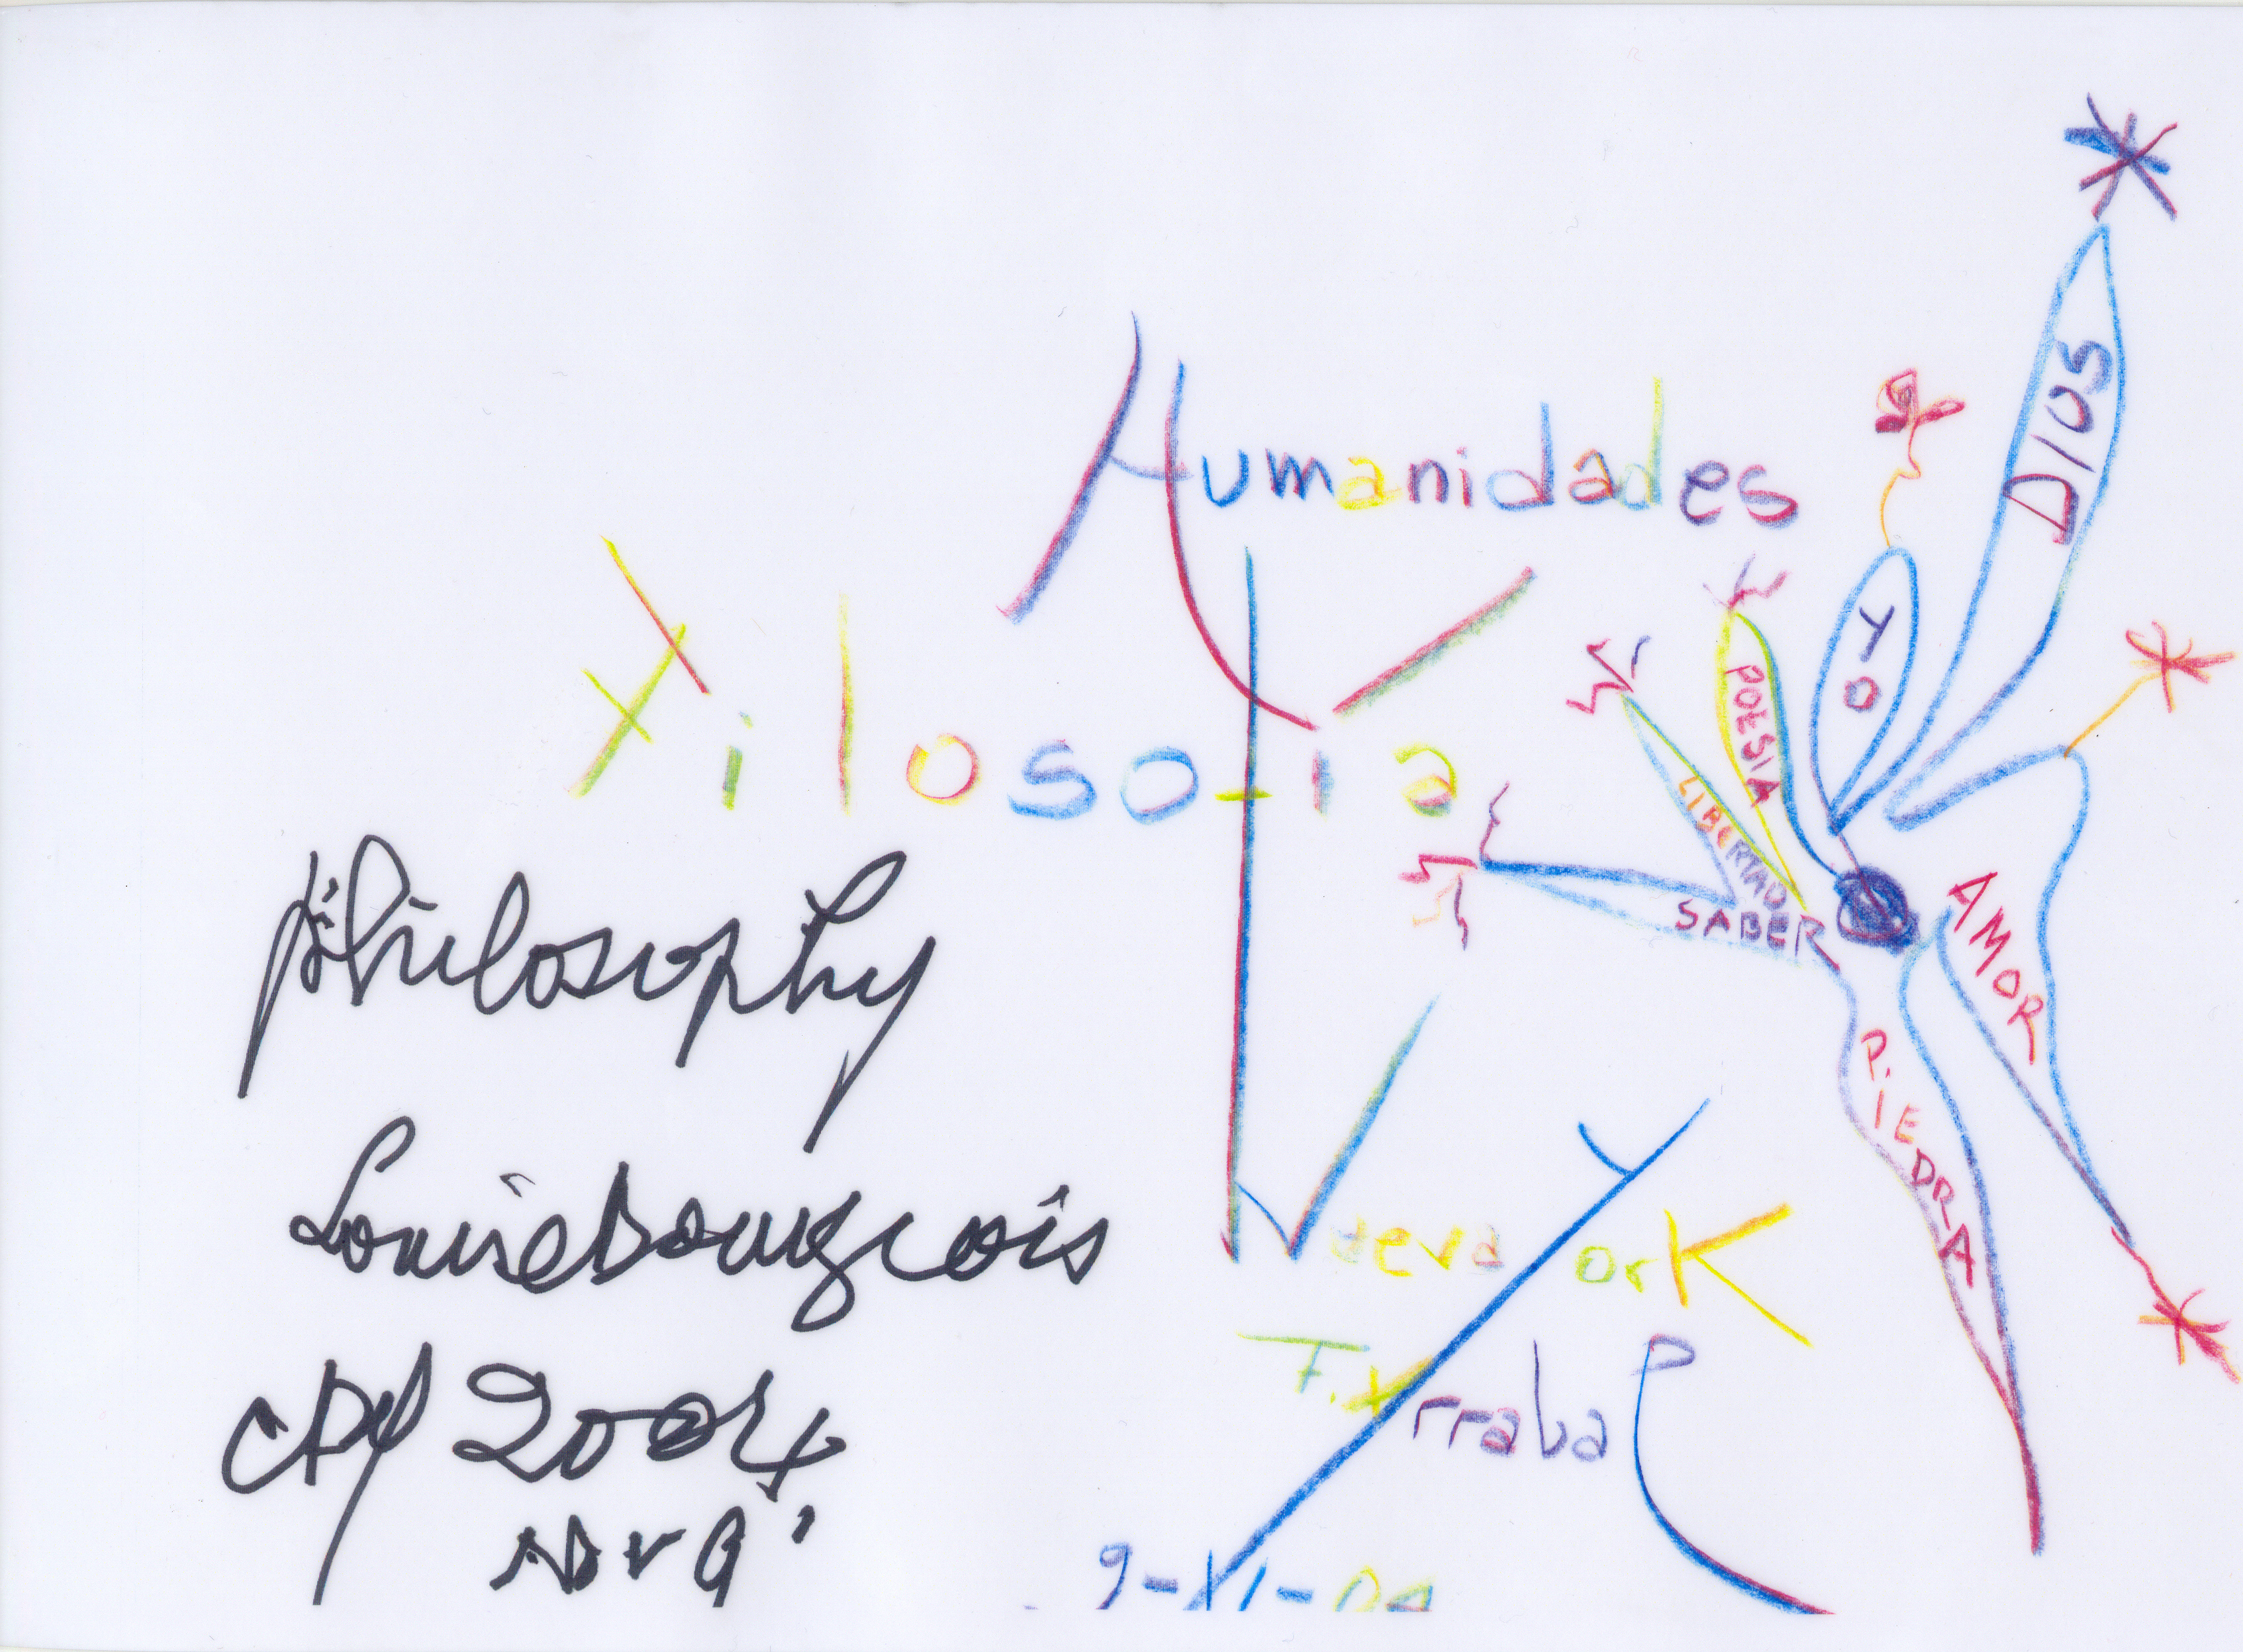 Humanidades
Filosofia
DIOS
YO
POESIA
LIBERTAD
SABER
AMOR
P.IEDRA
Philosophy
Louise Bourgeois
2004
Nov 9
Nueva York
F. Arrabal
9-XI-04